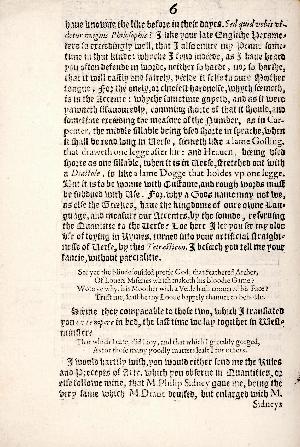 6
haue knowne the like before in these dayes. Sed quid vobis vi-
detur magni Philosophi? I like your late Englishe Hexame-
ters so exceedingly well, that I also enure my Penne some-
time in that kinde: whyche I fynd indeede, as I haue heard
you often defende in worde, neither so harde, nor so harshe,
that it will easily and fairely, yeelde it selfe to oure Moother
tongue. For the onely, or chiefest hardnesse, whych seemeth,
is in the Accente: whyche sometime gapeth, and as it were
yawneth ilfauouredly, comming shorte of that it should, and
sometime exceeding the measure of the Number, as in Car-
penter, the middle sillable being vsed shorte in speache, when
it shall be read long in Verse, seemeth like a lame Gosling,
that draweth one legge after hir: and Heauen, being vsed
shorte as one sillable, when it is in Verse, stretched out with
a Diastole, is like a lame Dogge that holdes vp one legge.
But it is to be wonne with Custome, and rough words must
be subdued with Vse. For, why a Gods name may not we,
as else the Greekes, haue the kingdome of oure owne Lan-
guage, and measure our Accentes, by the sounde, reseruing
the Quantitie to the Verse? Loe here I let you see my olde
vse of toying in Rymes, turned into your artificial straight-
nesse of Verse, by this Tetrasticon. I beseech you tell me your
fancie, without parcialitie.
See yee the blindefoulded pretie God, that feathered Archer,
Of Louers Miseries which maketh his bloodie Game?
Wote ye why, his Moother with a Veale hath coouered his Face?
Trust me, least he my Looue happely chaunce to beholde.
Seeme they comparable to those two, which I translated
you ex tempore in bed, the last time we lay togither in West-
minster?
That which I eate, did I ioy, and that which I greedily gorged,
As for those many goodly matters leaft I for others.
I would hartily wish, you would either send me the Rules
and Precepts of Arte, which you obserue in Quantities, or
else followe mine, that M. Philip Sidney gaue me, being the
very same which M. Drant deuised, but enlarged with M.
Sidneys